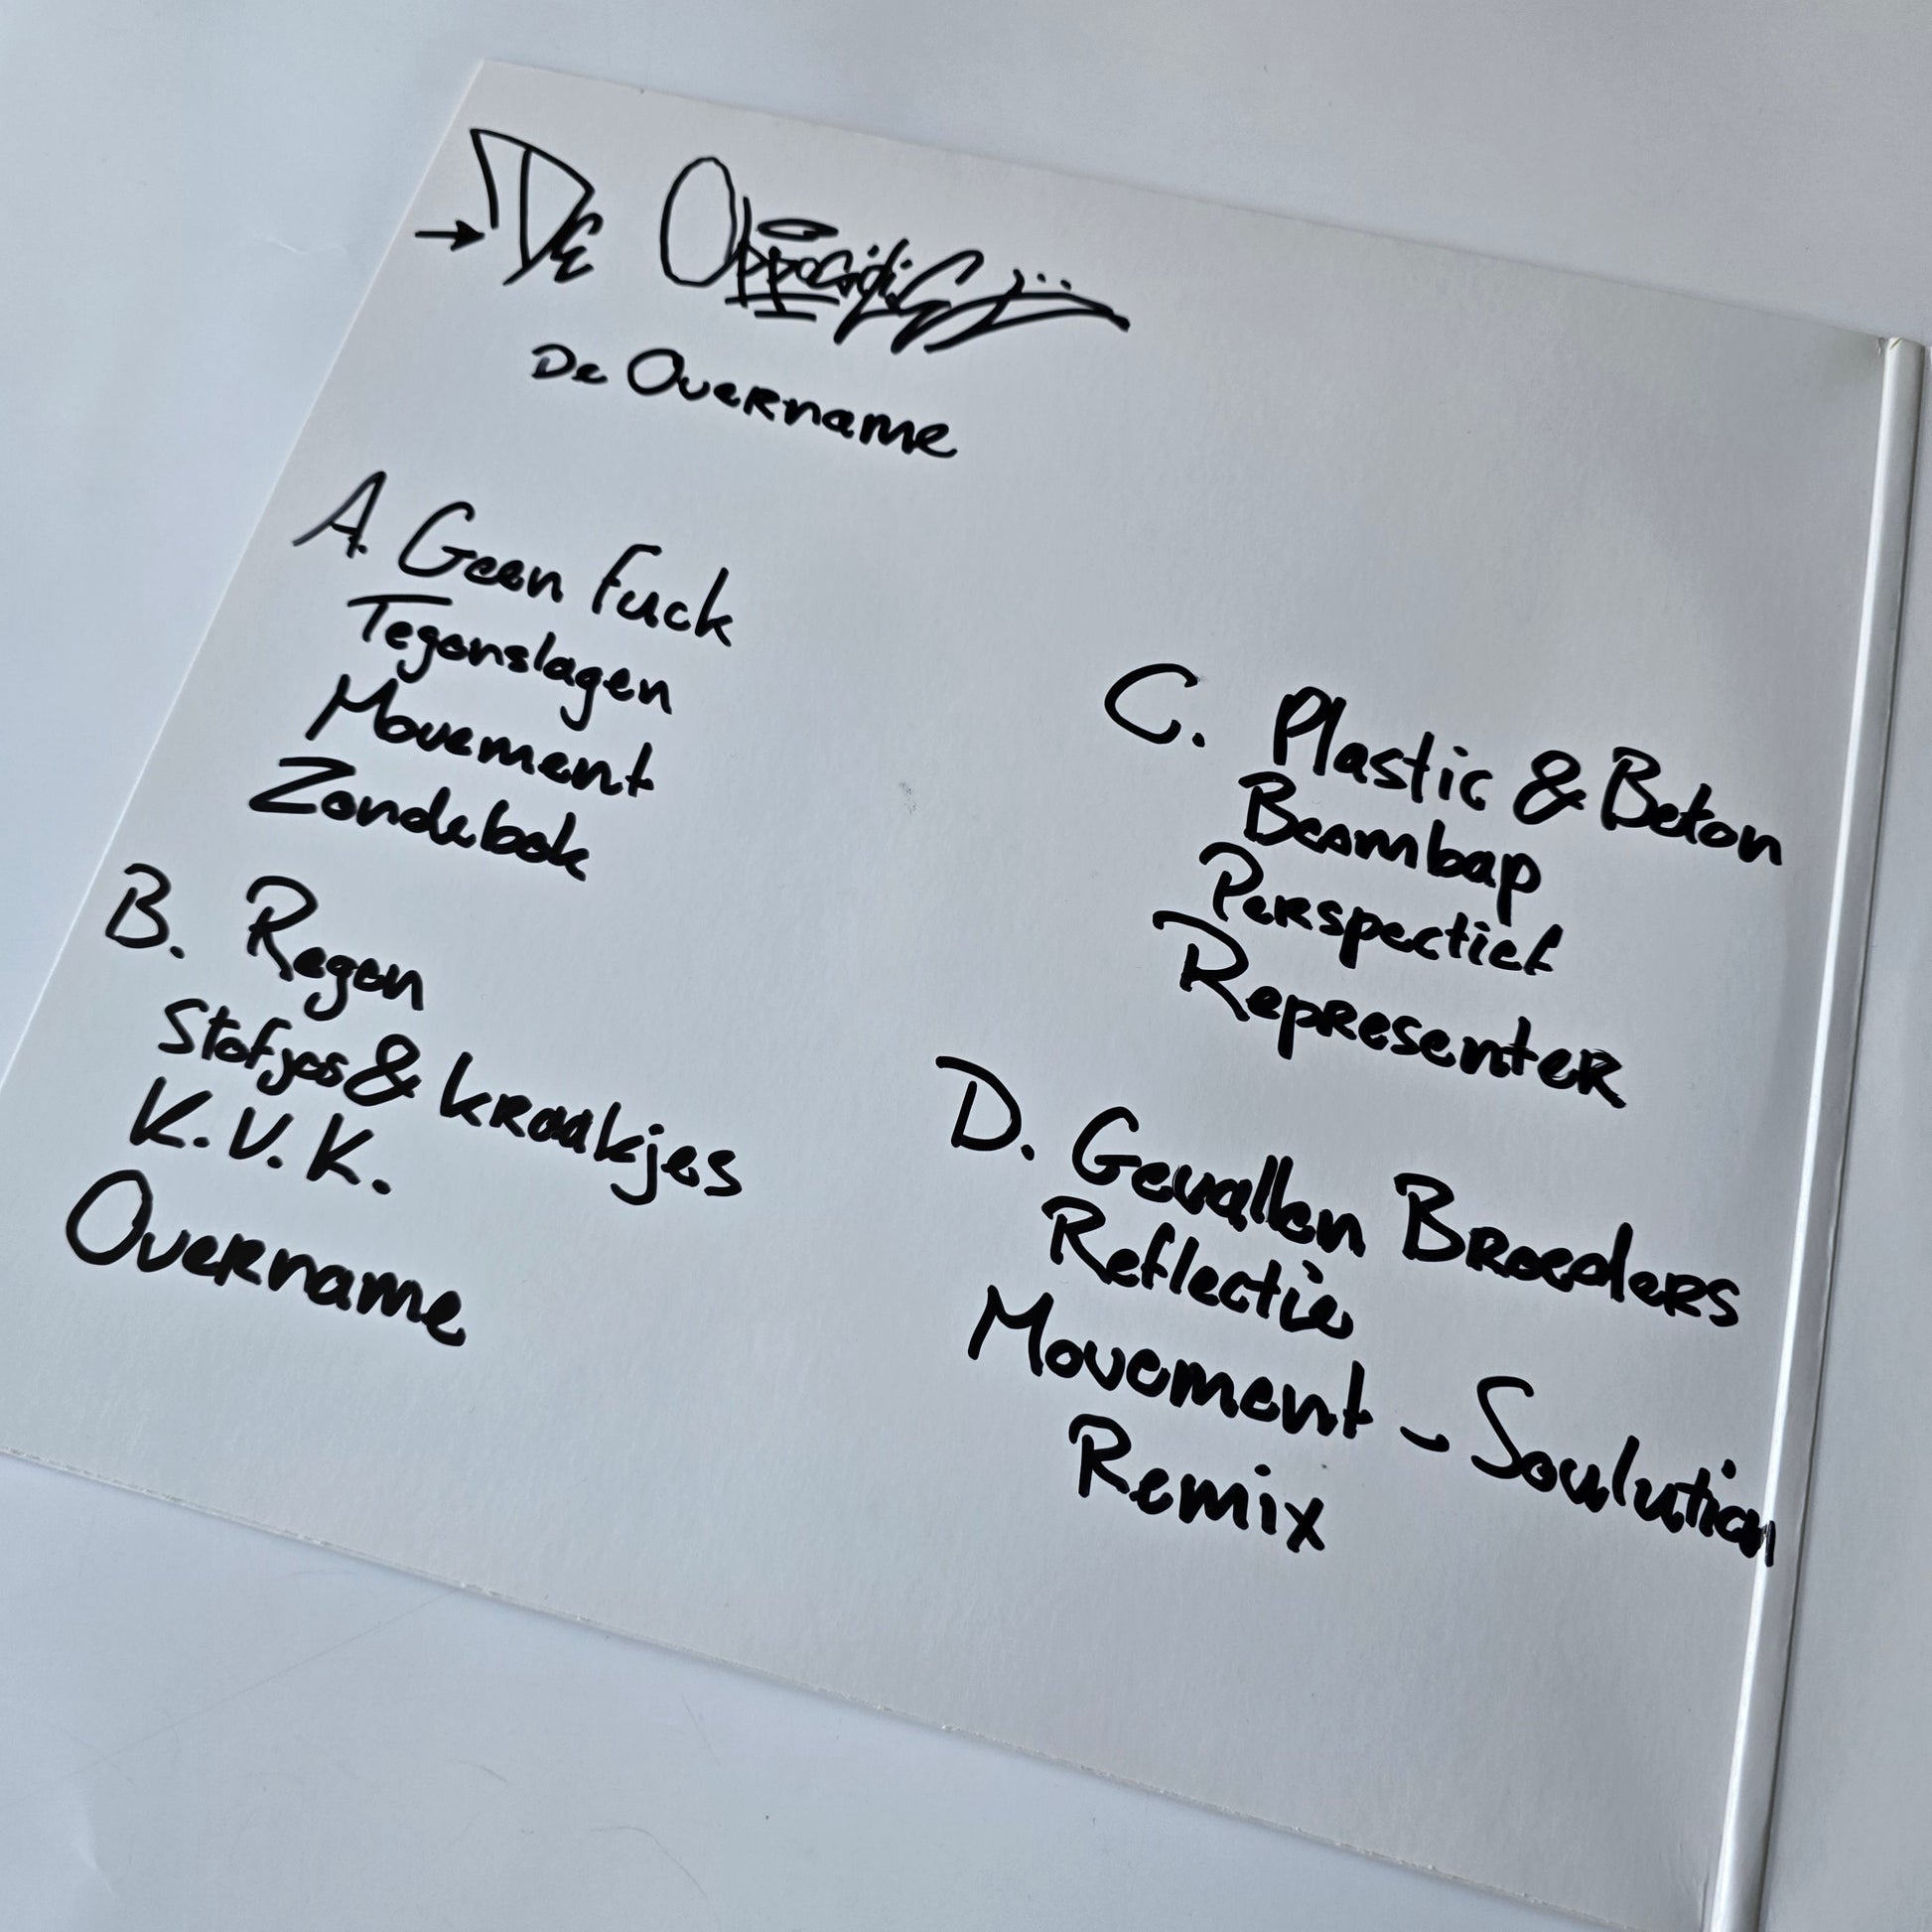 De Oppositie
De Overname
A. Geen Fuck
Tegenslagen
Movement
Zondebok
B. Regen
Stofjes & kraakjes
K.V.K.
Overname
C. Plastic & Beton
Boombap
Perspectief
Representer
D. Gevallen Broeders
Reflectie
Movement - Soulution
Remix